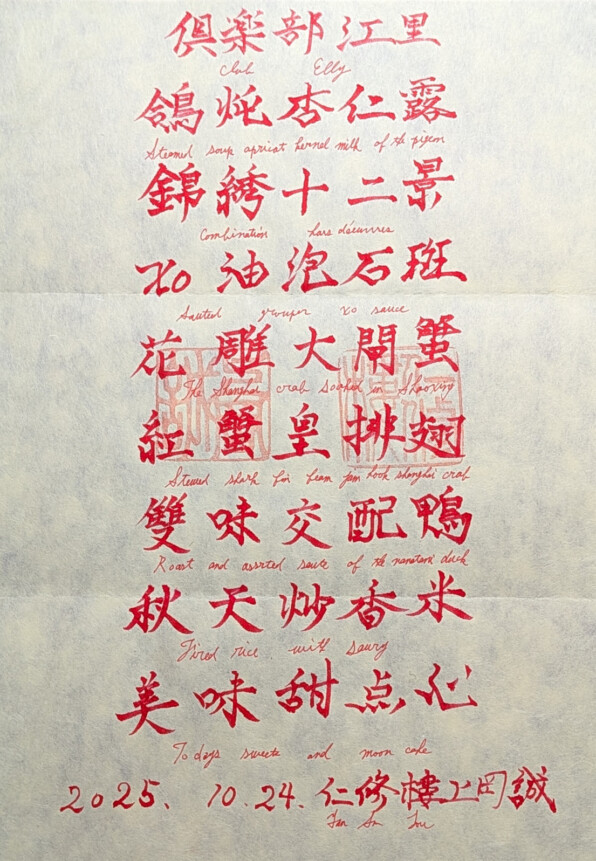 倶楽部 江里
Club Elly
鴿炖杏仁露
Steamed soup apricot kernel milk of the pigeon
錦綉十二景
Combination hors d'œuvres
XO油泡石斑
Sauted grouper xo sauce
花雕大閘蟹
The Shanghai crab soaked in Shaoxing
紅蟹皇排翅
Stewed shark fin
shanghai crab
雙味交配鴨
Roast and assrted saute of the nanatani duck
秋天炒香米
Fired rice with saury
美味甜点心
Todays sweets and moon cake
2025. 10.24. 仁修樓上岡誠